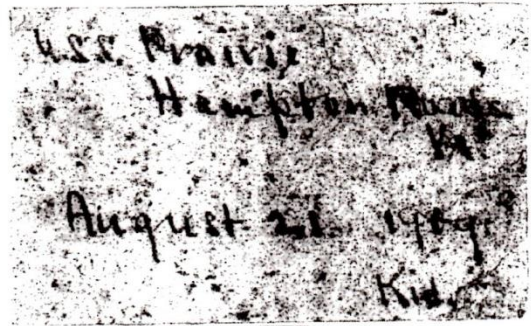 U.S.S. Prairie
Hampton Roads
Va
August 21. 1909.
Kid.